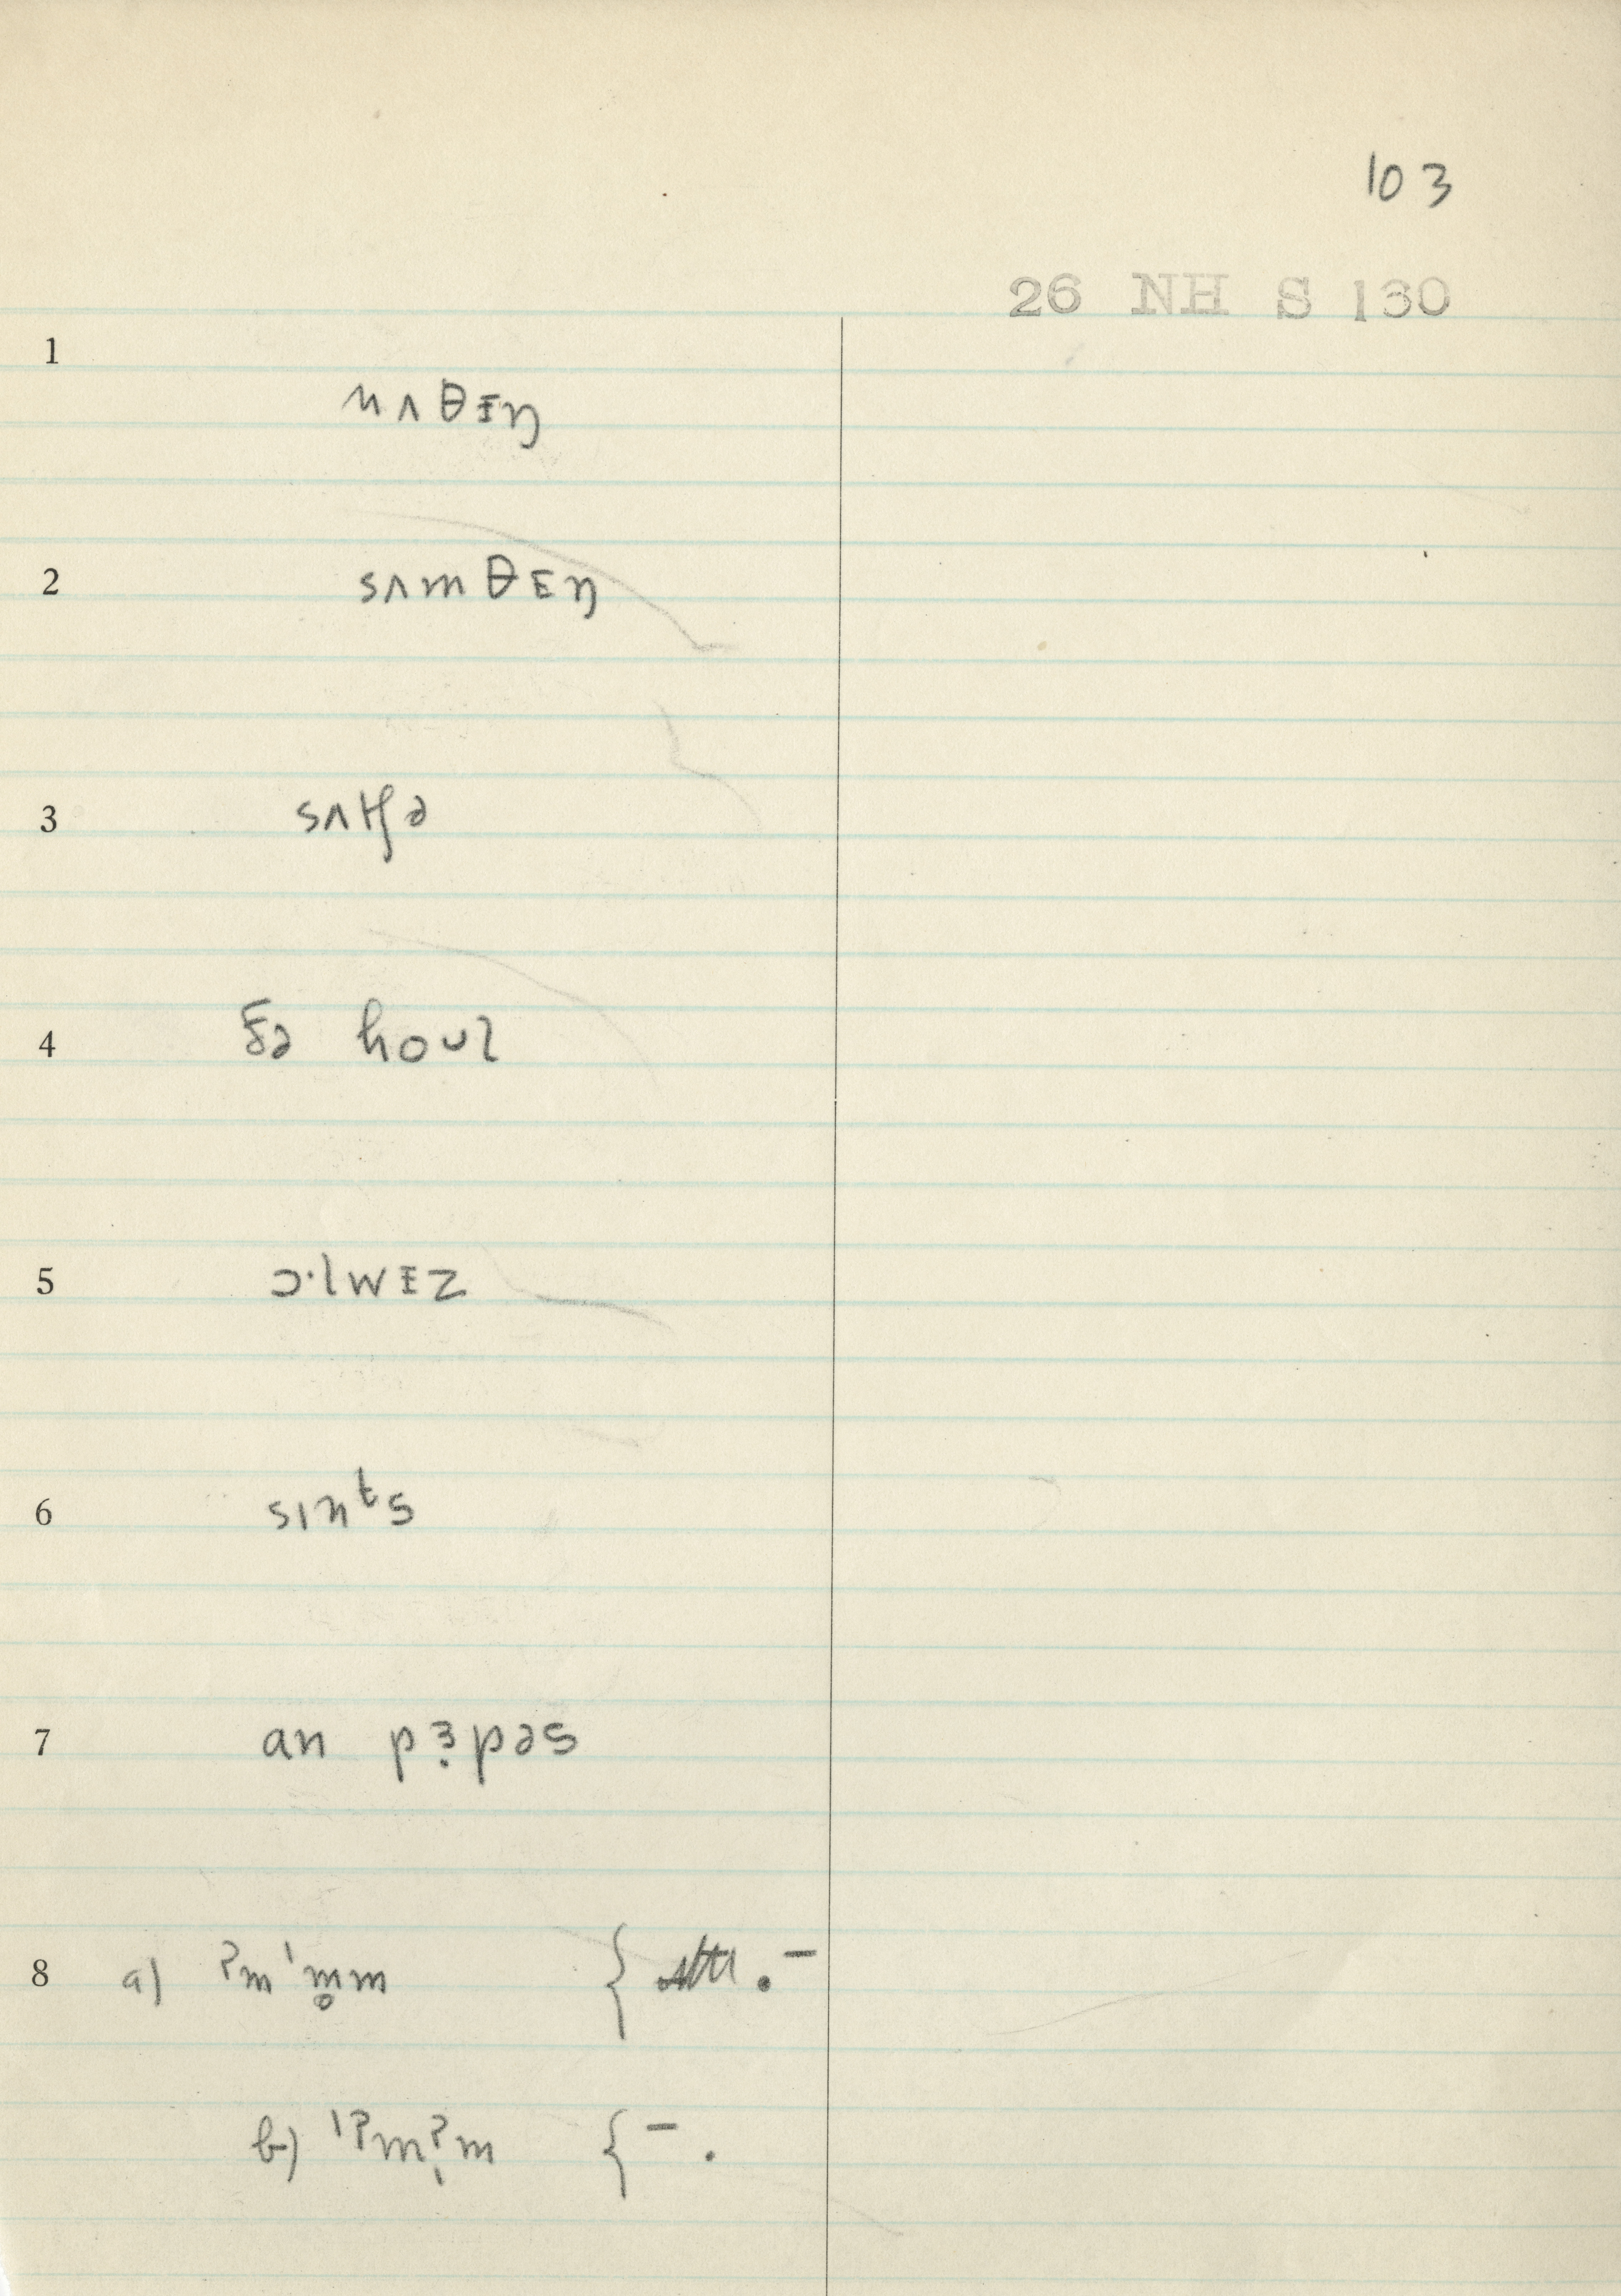 103
26 NH S 130
1
nʌθɪŋ
2
sʌmθɪŋ
3
sʌtʃə
4
ðə houl
5
ɔ·lwɪz
6
sınᵗs
7
an pɜpəs
8 a) ʔm'm̥m { . –
b) 'ʔmʔm { – .